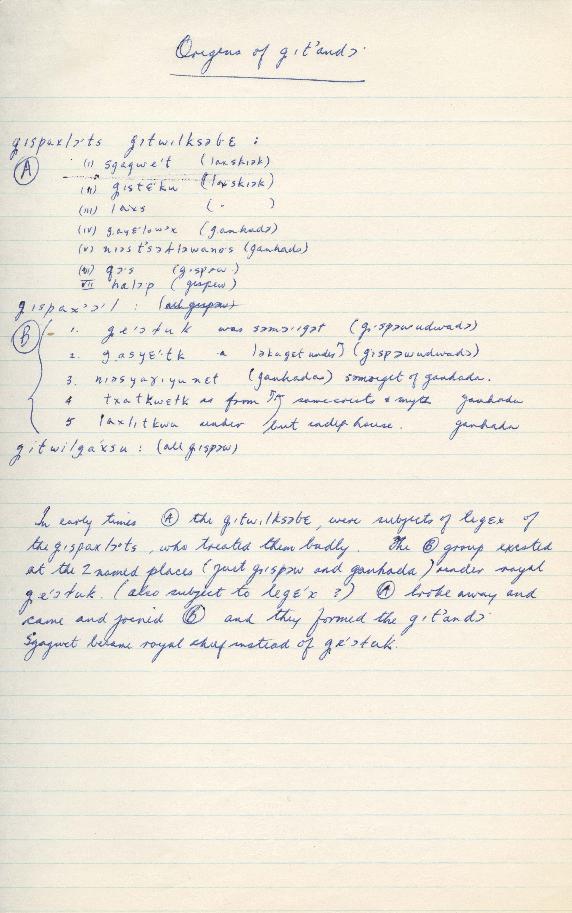 Origens of gıt'andɔ
gıspaxlɔ'ts gıtwılksəbɛ :
Ⓐ (ı) sgagwɛ't (laxskiək)
(ıı) gıstɛku (laxskiək)
(ııı) laıxs ( " )
(ıv) (ganhadə)
(v) (ganhadə)
qɔ's (gıspəw)
VII haləp (gıspəw)
: (all gıspəw)
Ⓑ 1. ge'ɔtuk was səmɔ'ıgət (gıspəwudwadə)
2. gasyɛ'tk a (gıspəwudwadə)
3. (ganhada) səmɔıget of ganhada.
4 txatkwɛtk as from same crests & myth ganhada
5 laxlıtkwu under but indep house. ganhada
gıtwılga'xsu : (all gıspəw)
In early times Ⓐ the gıtwılksəbɛ, were subjects of legɛx of
the gıspaxlɔ'ts, who treated them badly. The Ⓑ group existed
at the 2 named places (just gıspəw and ganhada) under royal
ge'ɔtuk. (also subject to lege'x ?) Ⓐ broke away and
came and joined Ⓑ and they formed the gıt'andɔ
Sgagwet became royal chief instead of ge'ɔtuk.